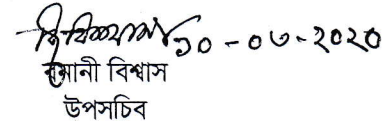 ১০-০৩-২০২০
রুমানী বিশ্বাস
উপসচিব